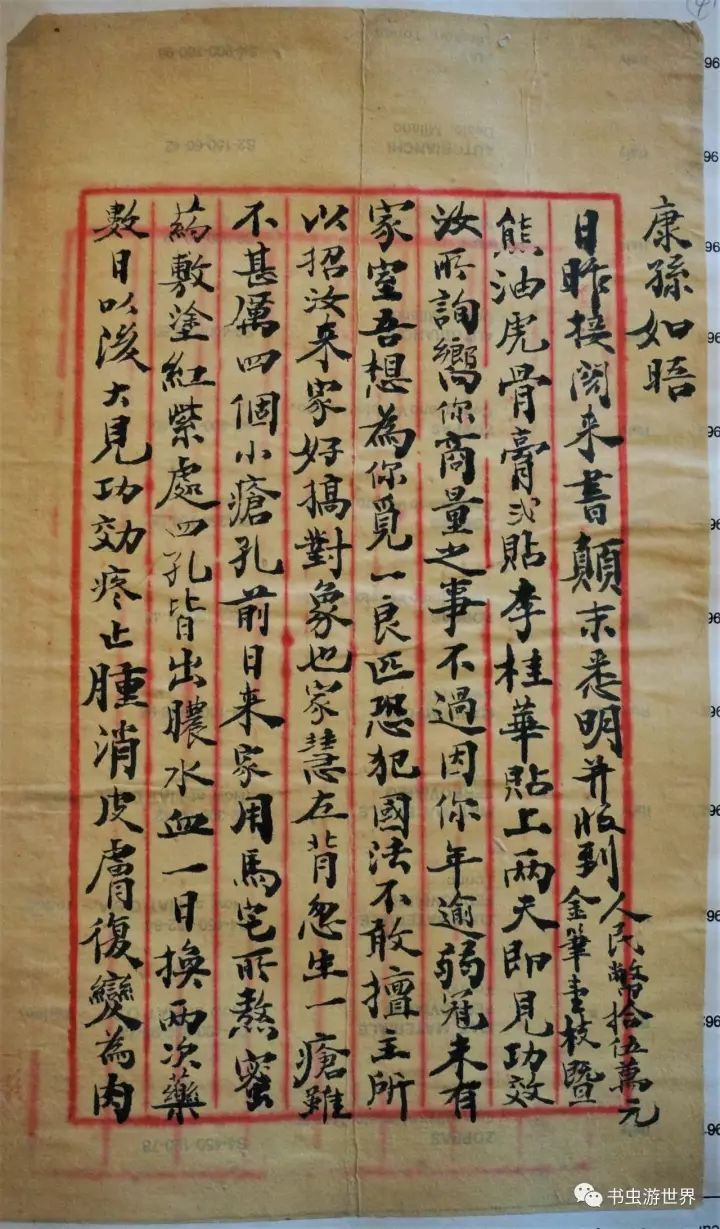 康孫如晤
日昨接閱来書顛末悉明并收到人民幣拾伍萬元金筆壹枝暨
熊油虎骨膏弍貼李桂華貼上两天即見功效
汝所詢嚮你商量之事不過因你年逾弱冠未有
家室吾想為你覓一良匹恐犯國法不敢擅主所
以招汝来家好搞對象也家慧左背忽生一瘡雖
不甚厲四個小瘡孔前日来家用馬宅所熬蜜
药敷塗紅紫處四孔皆出膿水血一日換两次藥
數日以後大見功効疼止腫消皮膚復變為肉
书虫游世界